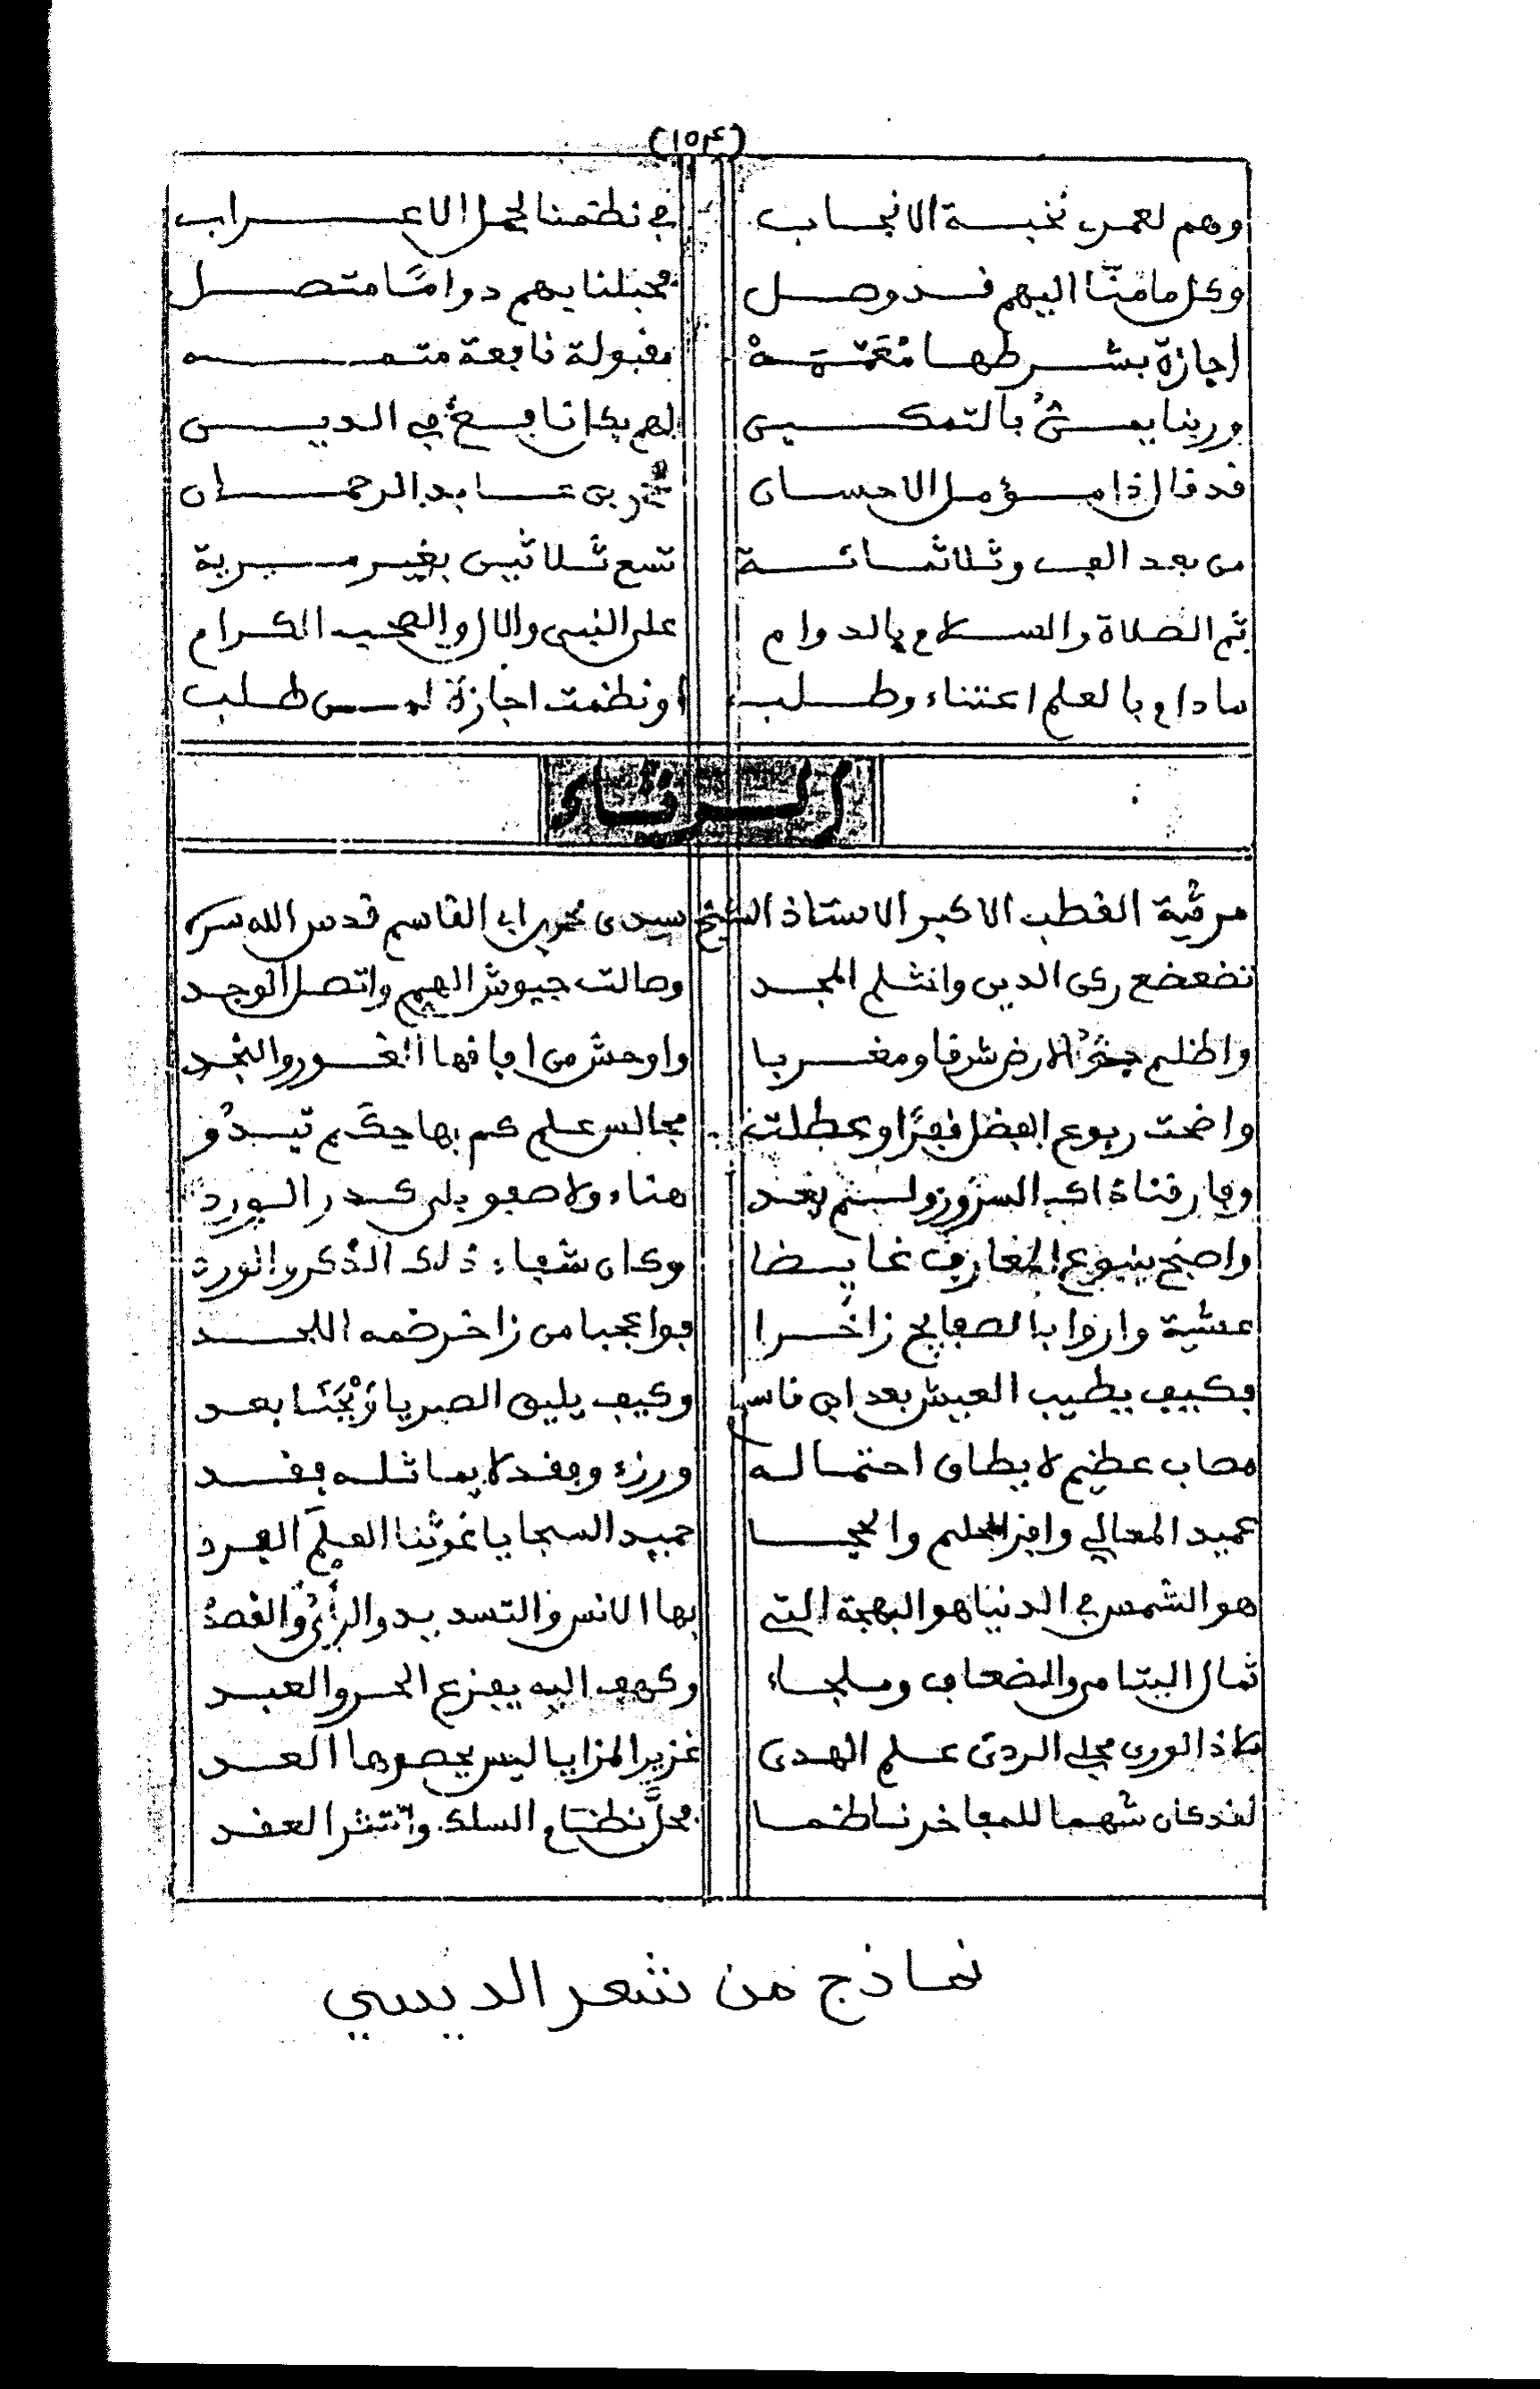 (١٥٤)
وهم لعمري نخبة الانجاب في نظمنا لجمل الاعراب
وكل ما منّا اليهم قد وصل فحبلنا بهم دوامًا متصل
اجازة بشرطها مُعَمَّمَهْ مقبولة نافعة متممه
وربنا يمنُّ بالتمكين لهم بكل نافع في الدين
قد قال ذا مؤمل الاحسان محمد بن عابد الرحمان
من بعد الف وثلاثمائة تسع ثلاثين بغير مرية
ثم الصلاة والسلام بالدوام على النبي والال والصحب الكرام
ما دام بالعلم اعتناء وطلب او نظمت اجازة لمن طلب
الرثاء
مرثية القطب الاكبر الاستاذ الشيخ سيدي محمد بن ابي القاسم قدس الله سره
تضعضع ركن الدين وانثلم المجد وصالت جيوش الهم واتصل الوجد
واظلم جوُّ الارض شرقا ومغربا واوحش من افاقها الغور والنجد
واضحت ربوع الفضل قفرًا وعطلت مجالس علم كم بها حِكَم تبدُو
وفارقنا ذاك السرور ولم يعد هناء ولا صفو بلى كدر الورد
واصبح ينبوع المعارف غايضا وكان شفاء ذلك الذكر والورد
عشية واروا بالصفايح زاخرا فواعجبا من زاخر ضمه اللحد
فكيف يطيب العيش بعد ابي قاسم وكيف يليق الصبر يا وَيْحَنَا بعد
مصاب عظيم لا يطاق احتماله ورزء وفقد لا يماثله فقد
عميد المعالي وافر الحلم والحجا حميد السجايا غوثنا العلَم الفرد
هو الشمس في الدنيا هو البهجة التي بها الانس والتسديد والرأيُ والقصدُ
ثمال اليتامى والضعاف وملجاء وكهف اليه يفزع الحر والعبد
ملاذ الورى مجلي الردى علم الهدى غزير المزايا ليس يحصرها العد
لقد كان شهما للمفاخر ناظما فحلَّ نظام السلك وانتثر العقد
نماذج من شعر الديسي